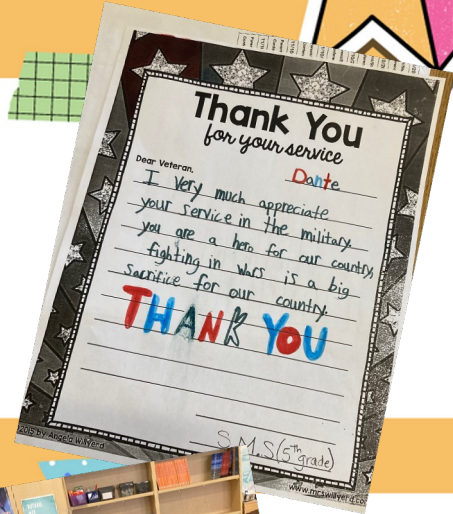 Thank You
for your service
Dear Veteran,
Dante
I very much appreciate
your service in the military.
you are a hero for our country,
fighting in wars is a big
sacrifice for our country.
THANK YOU
S.M.S (5th grade)
©2015 by Angela Willyerd
www.mrswillyerd.co